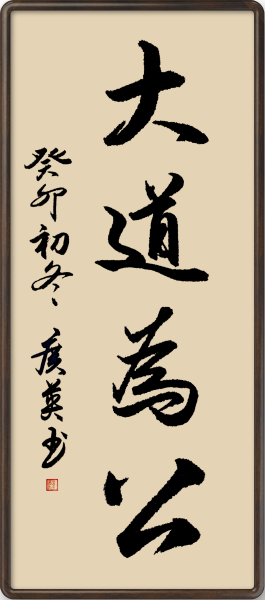 大道為公
癸卯初冬 侯英书